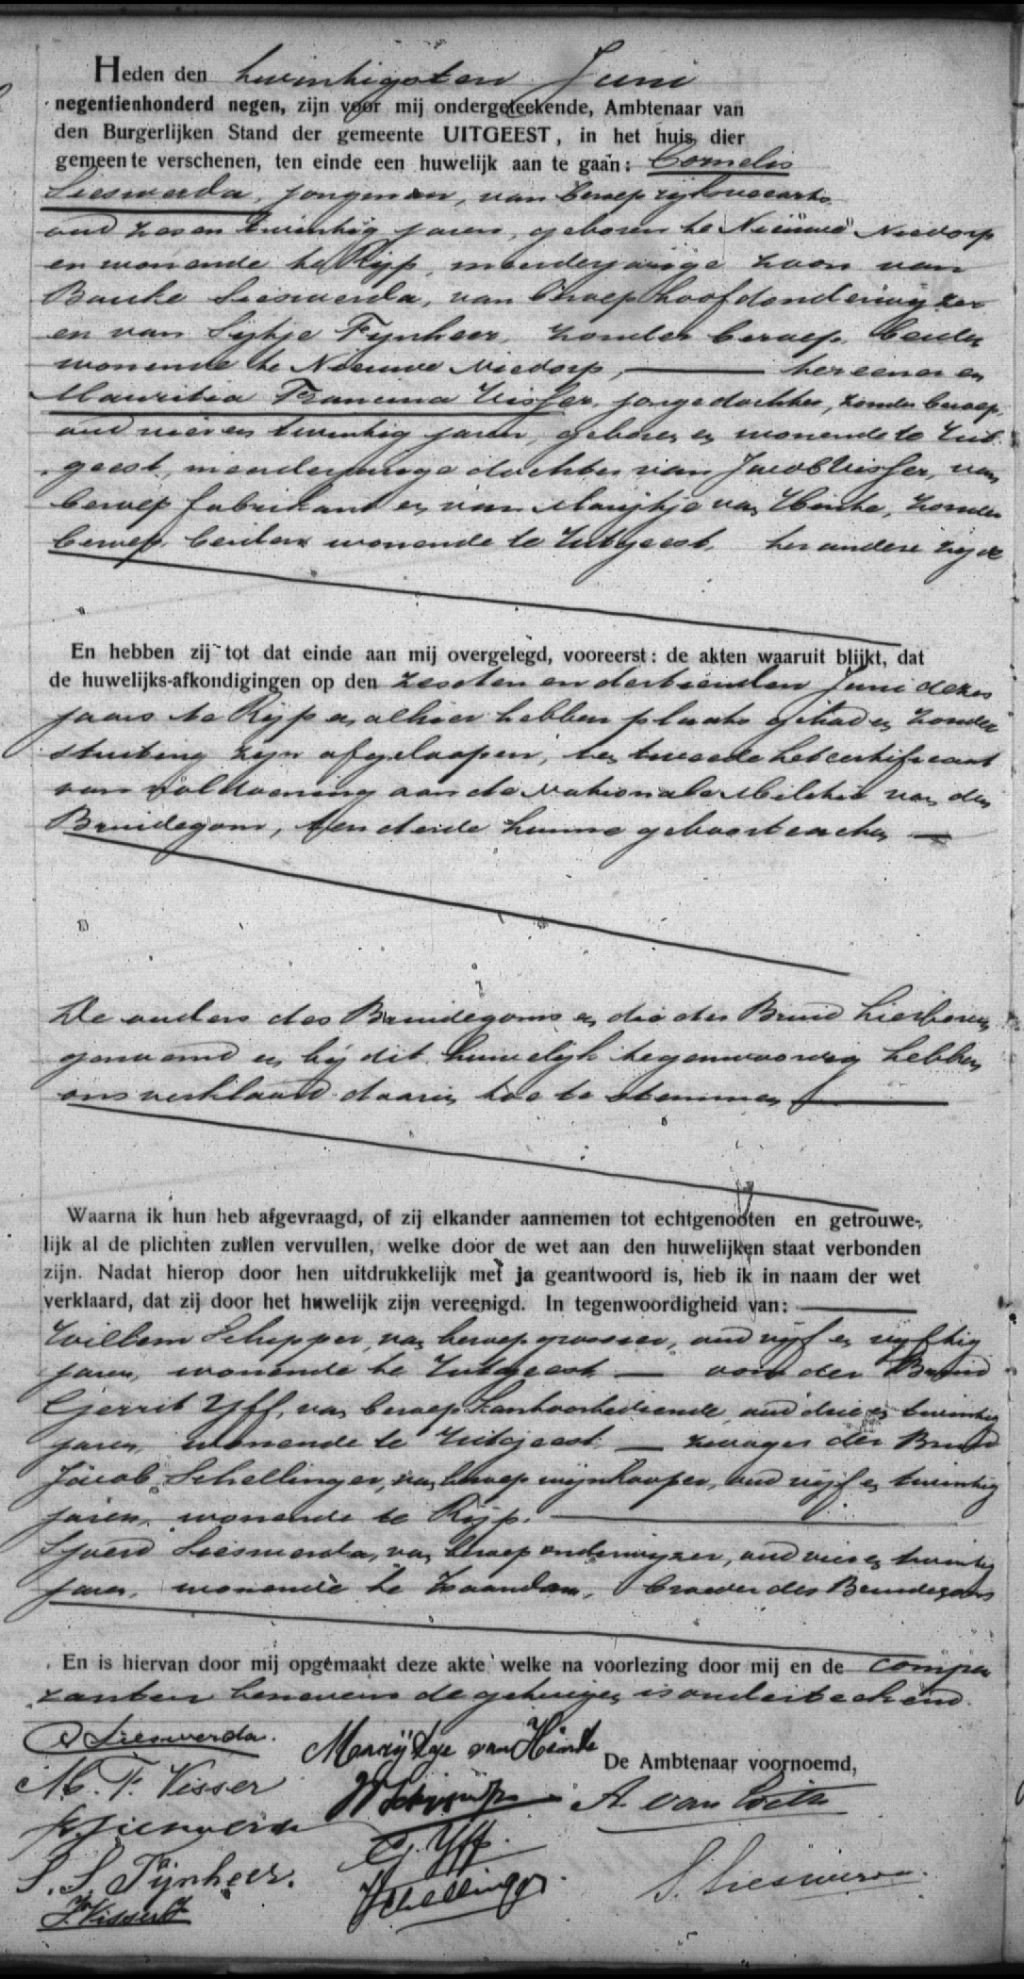 Heden den twintigsten Juni
negentienhonderd negen, zijn voor mij ondergeteekende, Ambtenaar van
den Burgerlijken Stand der gemeente UITGEEST, in het huis dier
gemeente verschenen, ten einde een huwelijk aan te gaan: Cornelis
Sieswerda, jongman, van beroep rijksveearts
oud zes en twintig jaren, geboren te Nieuwe Niedorp
en wonende te Rijp, meerderjarige zoon van
Bauke Sieswerda, van beroep hoofdonderwijzer
en van Sijtje Fijnheer, zonder beroep, beiden
wonende te Nieuwe Niedorp, ter eener en
Mauritia Francina Visser, jongedochter, zonder beroep,
oud vier en twintig jaren, geboren en wonende te Uit-
geest, meerderjarige dochter van Jacob Visser, van
beroep fabrikant en van Marijtje van Hinte, zonder
beroep, beiden wonende te Uitgeest, ter andere zijde
En hebben zij tot dat einde aan mij overgelegd, vooreerst: de akten waaruit blijkt, dat
de huwelijks-afkondigingen op den zesden en dertienden Juni dezes
jaars te Rijp en alhier hebben plaats gehad en zonder
stuiting zijn afgeloopen, ten tweede het certificaat
van voldoening aan de Nationale Militie van den
Bruidegom, ten derde hunne geboorteacten
De ouders des Bruidegoms en die der Bruid hierboven
genoemd en bij dit huwelijk tegenwoordig hebben
ons verklaard daarin toe te stemmen
Waarna ik hun heb afgevraagd, of zij elkander aannemen tot echtgenooten en getrouwe-
lijk al de plichten zullen vervullen, welke door de wet aan den huwelijken staat verbonden
zijn. Nadat hierop door hen uitdrukkelijk met ja geantwoord is, heb ik in naam der wet
verklaard, dat zij door het huwelijk zijn vereenigd. In tegenwoordigheid van:
Willem Schipper, van beroep grossier, oud vijf en vijftig
jaren, wonende te Uitgeest oom der Bruid
Gerrit Yff, van beroep kantoorbediende, oud drie en twintig
jaren, wonende te Uitgeest zwager der Bruid
Jacob Schellinger, van beroep wijnkooper, oud vijf en twintig
jaren, wonende te Rijp.
Sjoerd Sieswerda, van beroep onderwijzer, oud vier en twintig
jaren, wonende te Zaandam, broeder des Bruidegoms
En is hiervan door mij opgemaakt deze akte welke na voorlezing door mij en de compa-
ranten benevens de getuigen is onderteekend.
C Sieswerda.
M. F. Visser
B Sieswerda
S. S. Fijnheer.
J. Visser
Marijtje van Hinte
W Schipper
G. Yff.
J Schellinger.
De Ambtenaar voornoemd,
S. Sieswerda.